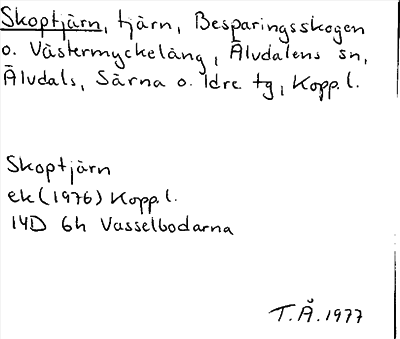 Skoptjärn, tjärn, Besparingsskogen
o. Västermyckeläng, Älvdalens sn,
Älvdals, Särna o. Idre tg, Kopp. l.
Skoptjärn
ek (1976) Kopp. l.
14D 6h Vasselbodarna
T. Å. 1977